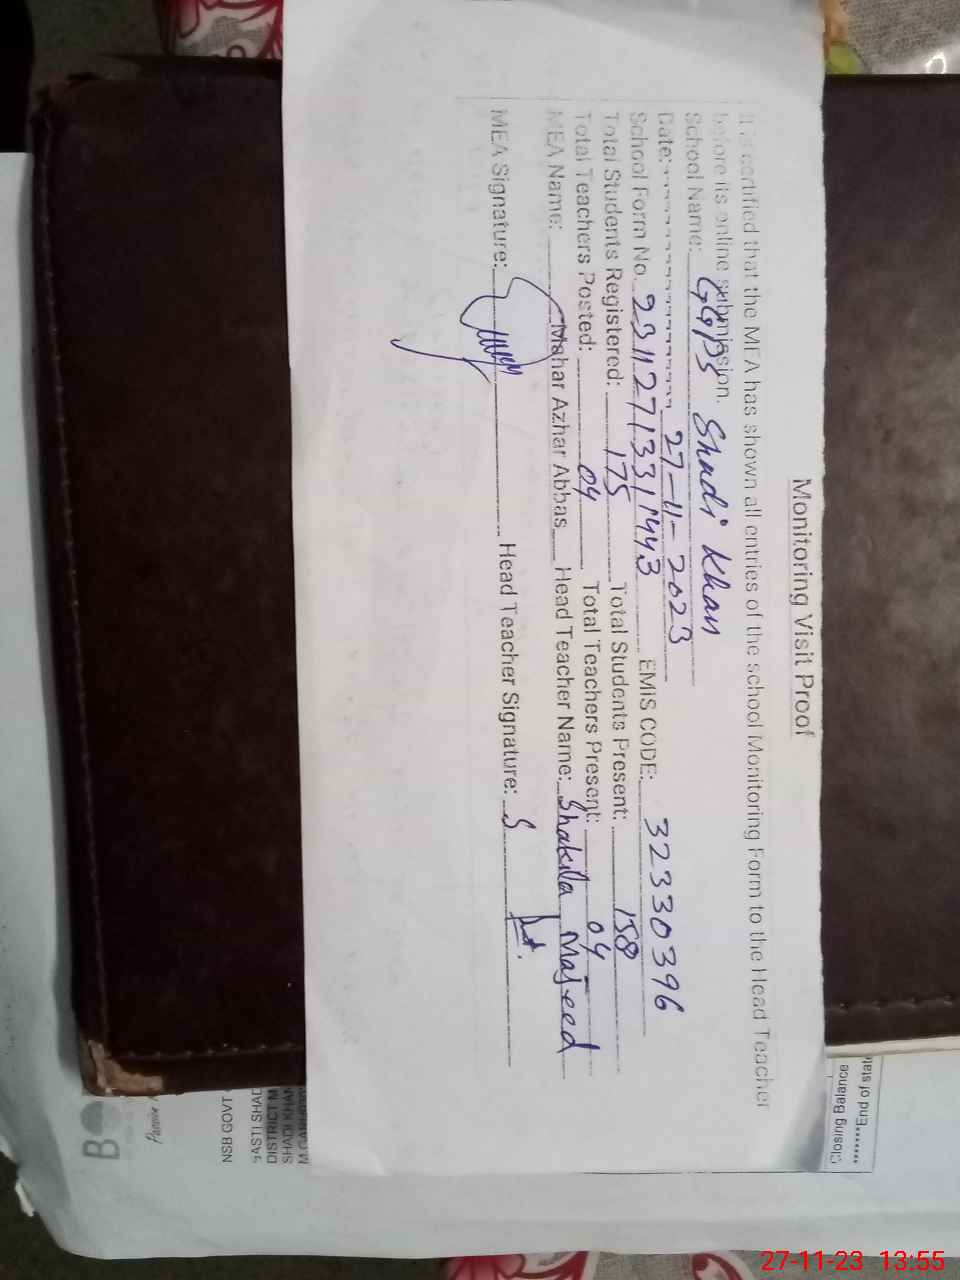 Monitoring Visit Proof
It is certified that the MEA has shown all entries of the school Monitoring Form to the Head Teacher
before its online submission.
School Name: GGPS Shadi Khan
Date: 27-11-2023
School Form No. 2311271331443 EMIS CODE: 32330396
Total Students Registered: 175 Total Students Present: 158
Total Teachers Posted: 04 Total Teachers Present: 04
MEA Name: Mahar Azhar Abbas Head Teacher Name: Shakila Majeed
MEA Signature: Head Teacher Signature:
********End of stat
Closing Balance
B
NSB GOVT
BASTI SHAD
DISTRICT M
SHADI KHAN
27-11-23 13:55